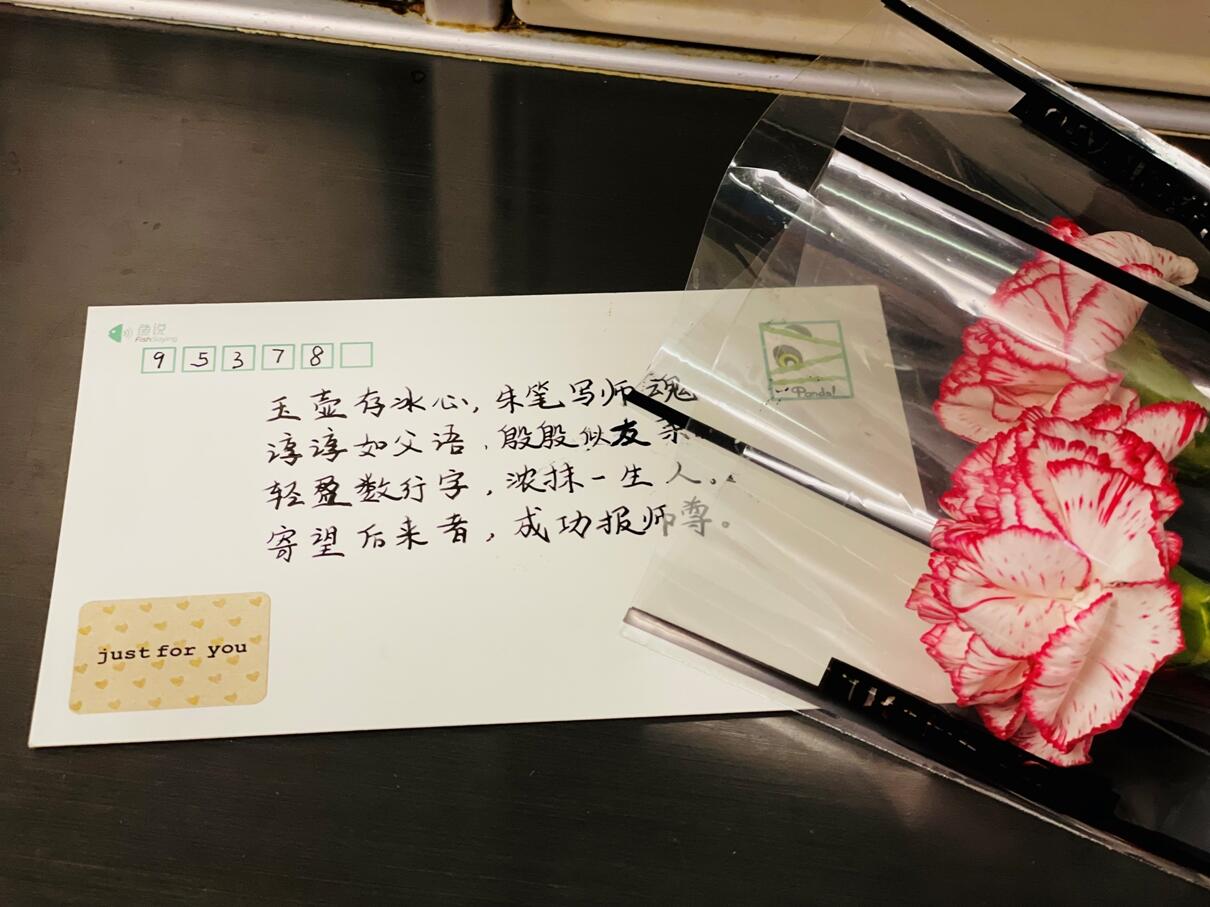 鱼说
FishSaying
9 5 3 7 8
玉壶存冰心,朱笔写师魂
谆谆如父语,殷殷似友亲
轻盈数行字,浓抹一生人。
寄望后来者,成功报师尊。
Panda!
just for you